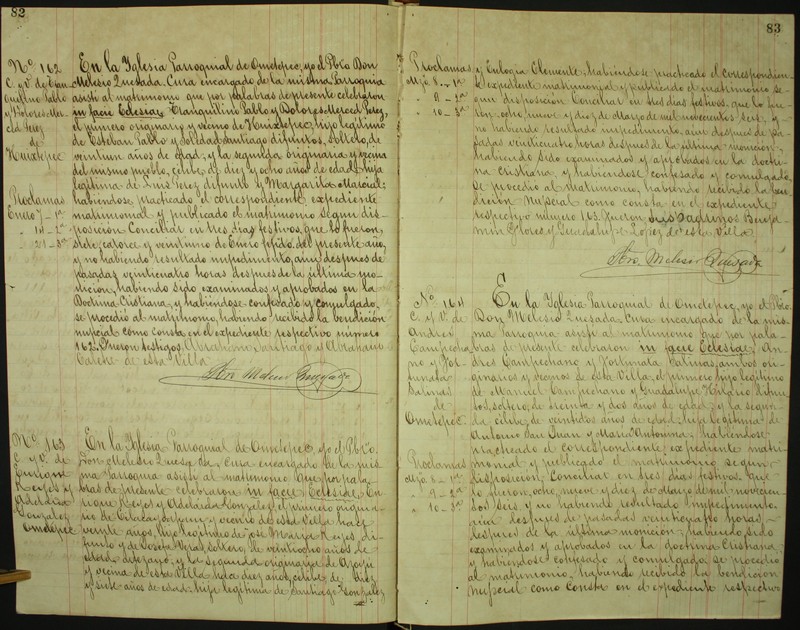 82
Nº 162
C. y V. de Tran
quilino Pablo
y Dolores Mer
ced Perez
de
Huixtepec
Proclamas
Enero 7 - 1ª
" 14 - 2ª
" 21 - 3ª
En la Yglesia Parroquial de Ometepec, yo el Pbro Don
Melesio Quesada, Cura encargado de la misma Parroquia
asistí al matrimonio que por palabras de presente celebraron
in facie Eclesiae, Tranquilino Pablo y Dolores Merced Perez,
el primero originario y vecino de Huixtepec, hijo legítimo
de Esteban Pablo y Soledad Santiago difuntos, soltero, de
veintiun años de edad; y la segunda originaria y vecina
del mismo pueblo, celibe, de diez y ocho años de edad, hija
legítima de Luis Perez difunto y Margarita Marcial;
habiéndose practicado el correspondiente expediente
matrimonial y publicado el matrimonio segun dis-
posicion Conciliar en tres dias festivos, que lo fueron,
siete, catorce y veintiuno de Enero ppdo. del presente año,
y no habiendo resultado impedimento, aun despues de
pasadas veinticuatro horas despues de la última mo-
nicion, habiendo sido examinados y aprobados en la
Doctrina Cristiana, y habiéndose confesado y comulgado,
se procedió al matrimonio, habiendo recibido la bendición
nupcial como consta en el expediente respectivo número
162. Fueron testigos, Abraham Santiago y Abraham
de esta Villa
Pbro. Melesio Quesada
Nº 163
C. y V. de
Enrique
Reyes y
Adelaida
Gonzalez
Ometepec
En la Yglesia Parroquial de Ometepec, yo el Pbro.
Don Melesio Quesada, Cura encargado de la mis
ma Parroquia asistí al matrimonio que por pala-
bras de presente celebraron in facie Eclesiae, En-
rique Reyes y Adelaida Gonzalez, el primero origina-
rio de y vecino de esta Villa hace
veinte años, hijo legítimo de José María Reyes di-
funto y de Josefa soltero, de veintiocho años de
edad y la segunda originaria de Azoyú
y vecina de esta Villa hace diez años, celibe, de diez
y siete años de edad, hija legítima de Santiago Gonzalez
83
Proclamas
Mzo 8 - 1ª
" 9 - 2ª
" 10 - 3ª
y Eulogia Clemente; habiéndose practicado el correspondien-
te expediente matrimonial y publicado el matrimonio se-
gun disposicion Conciliar en tres dias festivos, que lo fue-
ron, ocho, nueve y diez de Marzo de mil novecientos seis, y
no habiendo resultado impedimento, aun despues de pa-
sadas veinticuatro horas despues de la última monicion,
habiendo sido examinados y aprobados en la doctri-
na Cristiana, y habiéndose confesado y comulgado,
se procedió al matrimonio, habiendo recibido la ben-
dicion nupcial como consta en el expediente
respectivo número 163. Fueron sus Padrinos Benja-
min Flores y Guadalupe Lopez de esta Villa
Pbro. Melesio Quesada
Nº 164
C. y V. de
Andrés
Campecha-
no y For-
tunata
Salinas
de
Ometepec
Proclamas
Mzo 8 - 1ª
" 9 - 2ª
" 10 - 3ª
En la Yglesia Parroquial de Ometepec, yo el Pbro.
Don Melesio Quesada, Cura encargado de la mis-
ma Parroquia asistí al matrimonio que por pala-
bras de presente celebraron in facie Eclesiae, An-
drés Campechano y Fortunata Salinas, ambos ori-
ginarios y vecinos de esta Villa, el primero hijo legítimo
de Manuel Campechano y Guadalupe Hilario difun-
tos, soltero, de treinta y dos años de edad; y la segun-
da celibe, de veintidos años de edad, hija legítima de
Antonio San Juan y María Antonina; habiéndose
practicado el correspondiente expediente matri-
monial y publicado el matrimonio segun
disposicion Conciliar en tres dias festivos, que
lo fueron, ocho, nueve y diez de Marzo de mil novecien-
tos seis, y no habiendo resultado impedimento,
aun despues de pasadas veinticuatro horas
despues de la última monición; habiendo sido
examinados y aprobados en la doctrina Cristiana,
y habiéndose confesado y comulgado, se procedió
al matrimonio, habiendo recibido la bendicion
nupcial como consta en el expediente respectivo